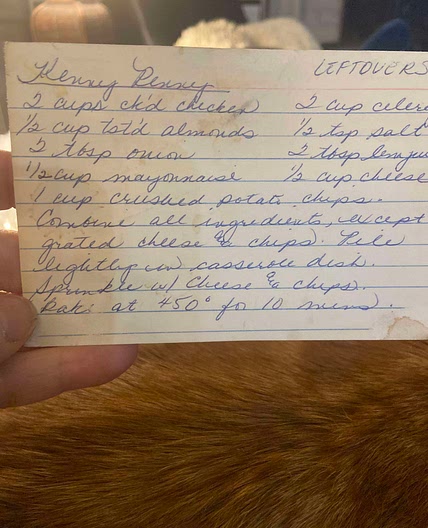 Henny Penny LEFTOVERS
2 cups ck'd chicken 2 cup celer
½ cup tst'd almonds ½ tsp salt
2 tbsp onion 2 tbsp lemju
½ cup mayonnaise ½ cup cheese
1 cup crushed potato chips.
Combine all ingredients, except
grated cheese & chips. Pile
lightly in casserole dish.
Sprinkle w/ Cheese & chips.
Bake at 450° for 10 mins.